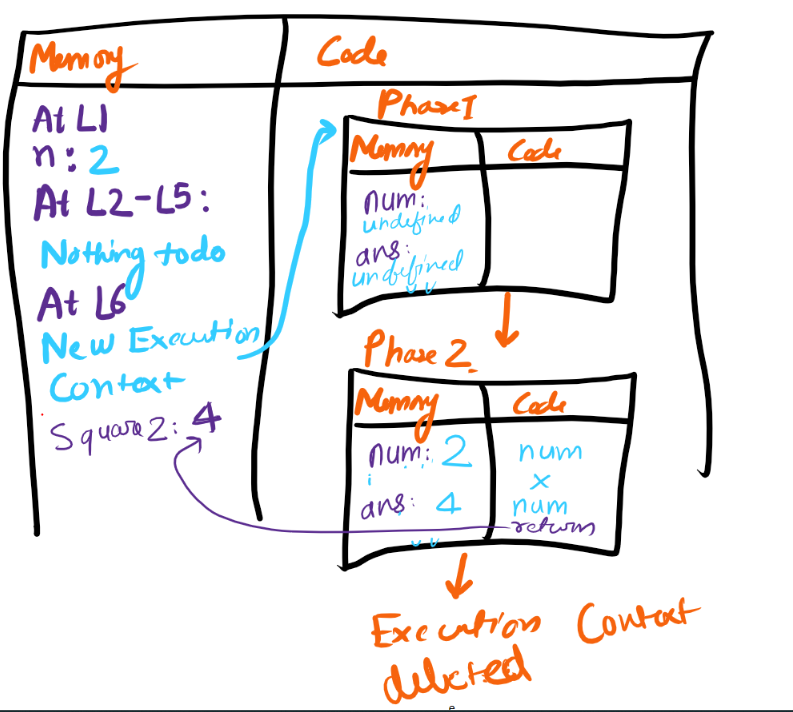 Memory
Code
At L1
n: 2
At L2-L5:
Nothing todo
At L6
New Execution
Context
Square2: 4
Phase I
Memory
Code
num:
undefined
ans:
undefined
Phase 2.
Memory
Code
num: 2
ans: 4
num
x
num
return
Execution Context
deleted
e